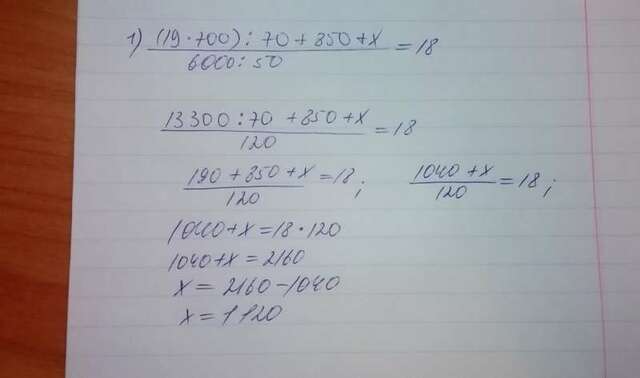 1) (19·700):70+850+x / 6000:50 = 18
13300:70+850+x / 120 = 18
190+850+x / 120 = 18; 1040+x / 120 = 18;
1040+x=18·120
1040+x=2160
x=2160-1040
x=1120